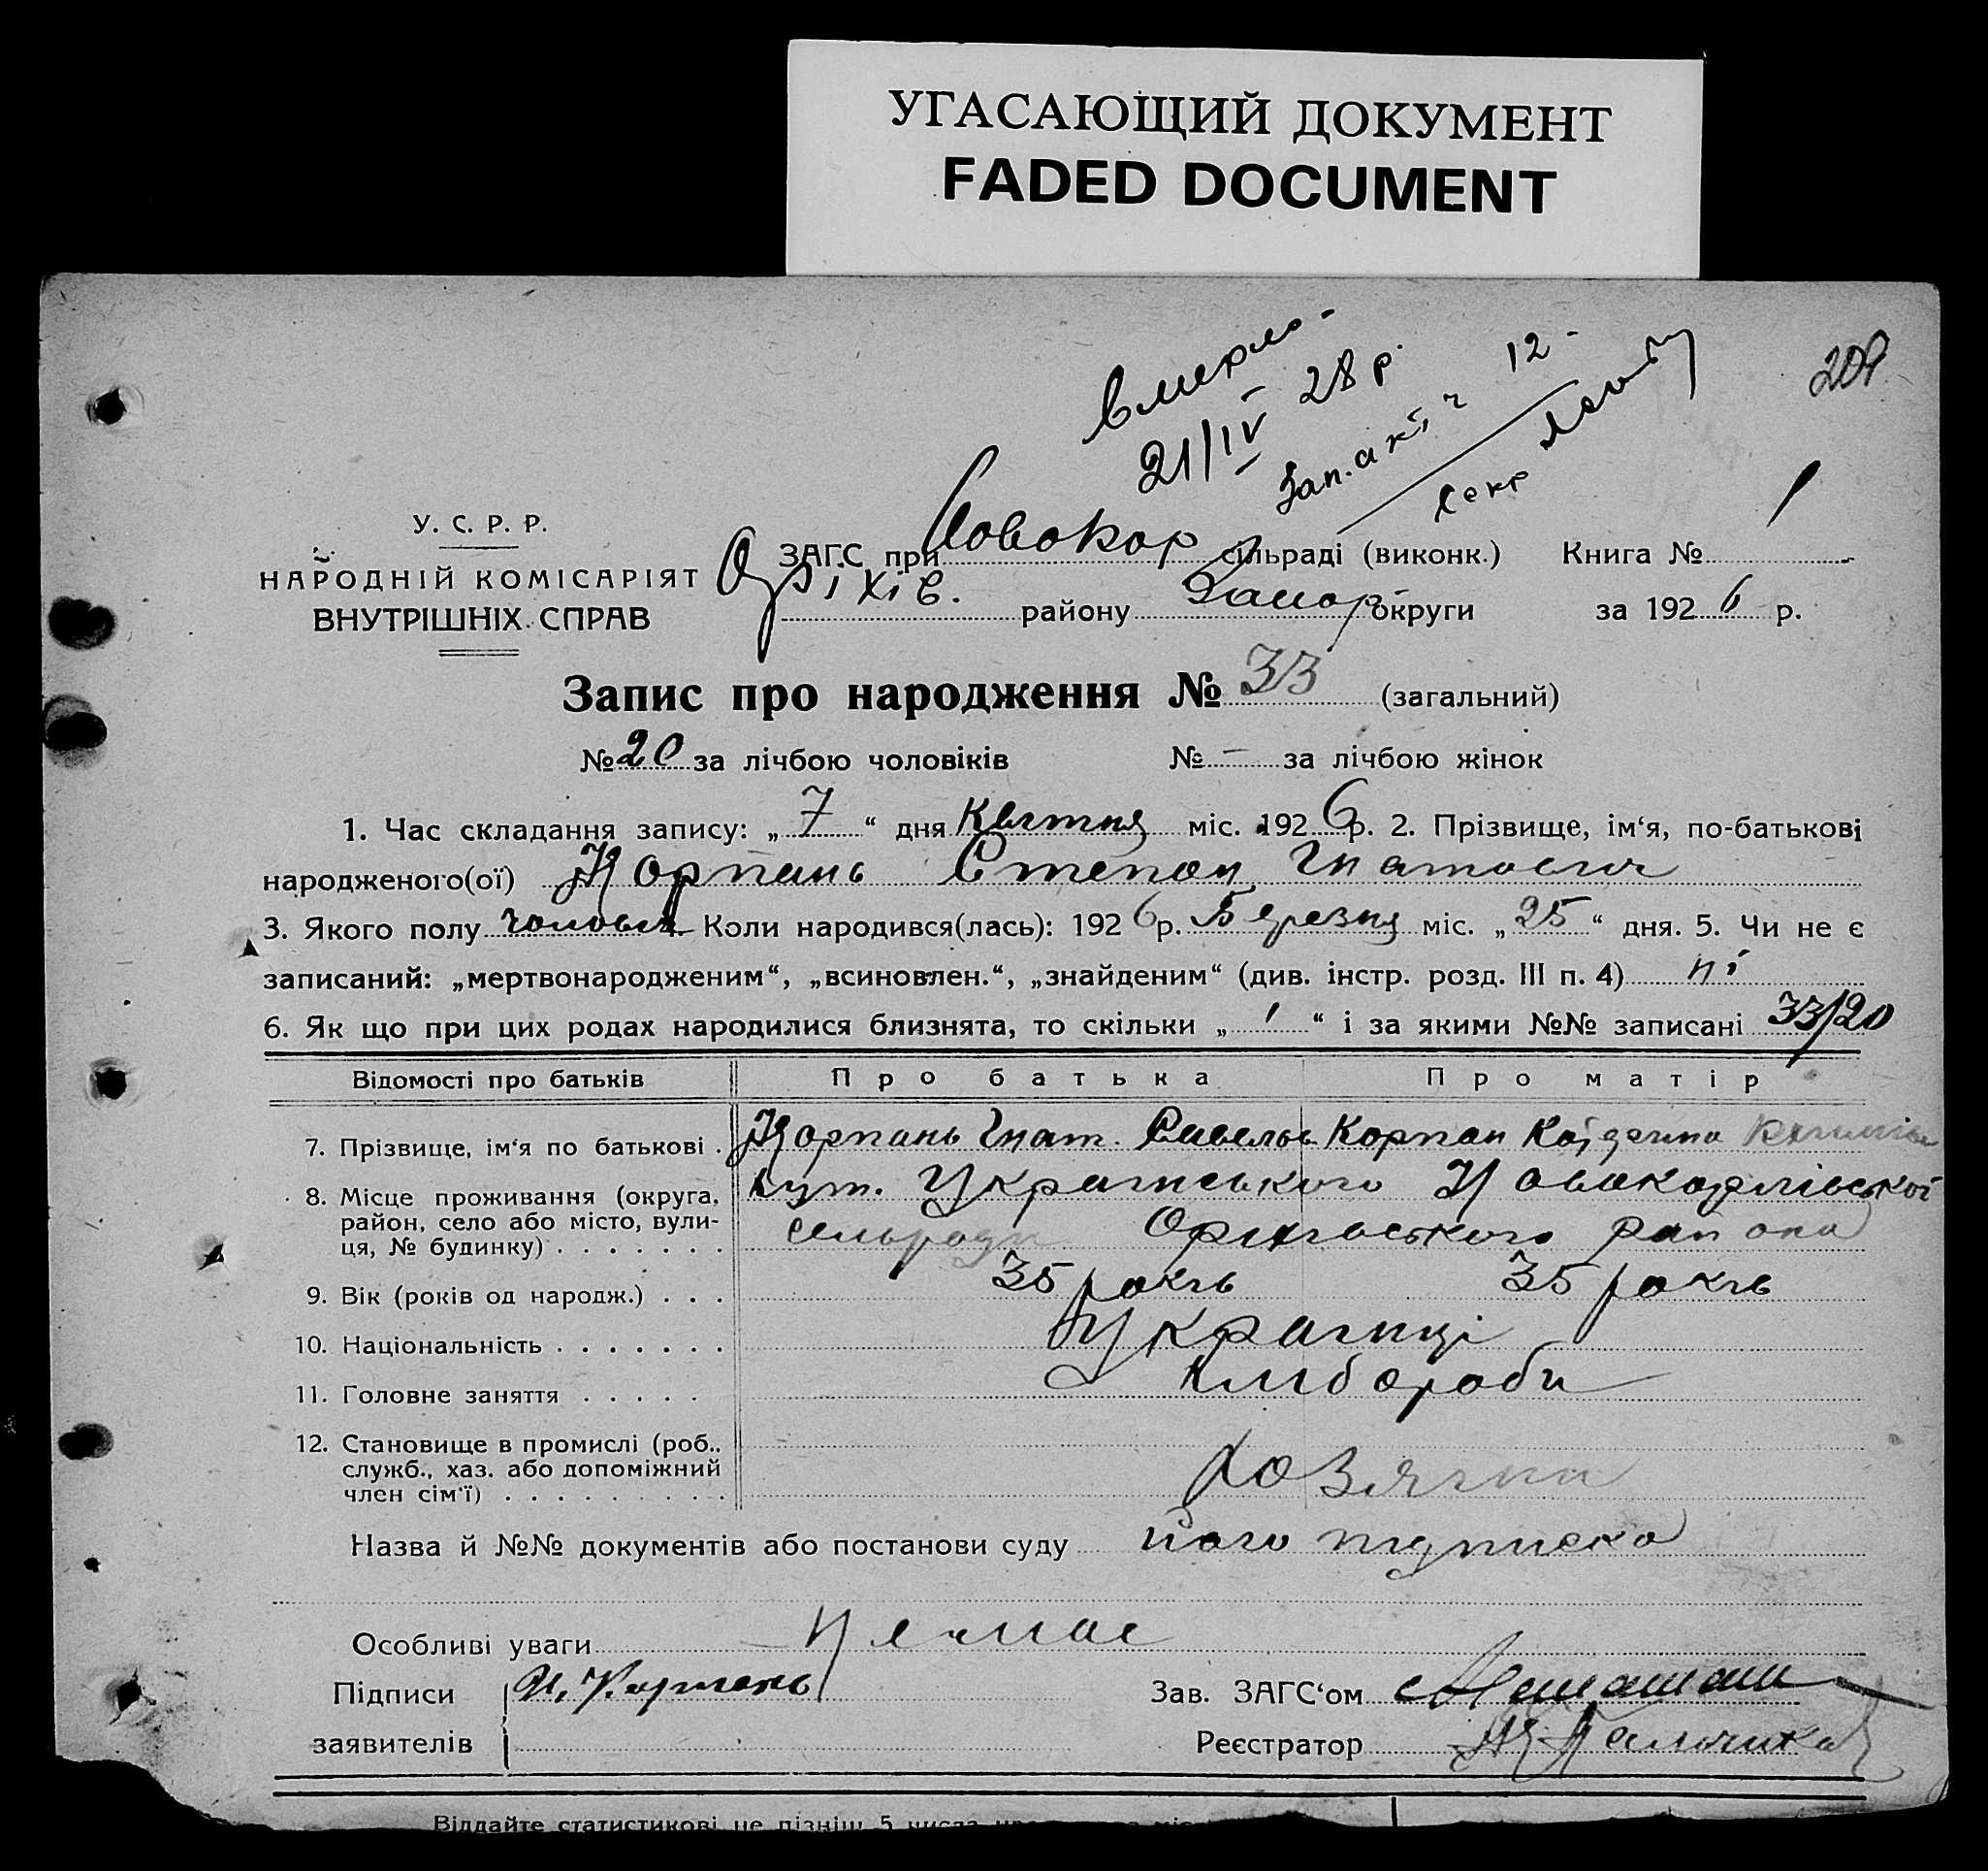 УГАСАЮЩИЙ ДОКУМЕНТ
FADED DOCUMENT
вмерло
21/IV 28 р.
Зап. акт, ч 12
Секр
209
У. С. Р. Р.
НАРОДНІЙ КОМІСАРІЯТ
ВНУТРІШНІХ СПРАВ
ЗАГС при Новокар сільраді (виконк.) Книга № 1
Оріхів. району Запор округи за 1926 р.
Запис про народження № 33 (загальний)
№ 20 за лічбою чоловіків № — за лічбою жінок
1. Час складання запису: „7“ дня Квітня міс. 1926 р. 2. Прізвище, ім‘я, по-батькові
народженого(ої) Корпань Степан Гнатович
3. Якого полу чоловіч. 4. Коли народився(лась): 1926 р. Березня міс. „25“ дня. 5. Чи не є
записаний: „мертвонародженим“, „всиновлен.“, „знайденим“ (див. інстр. розд. III п. 4) ні
6. Як що при цих родах народилися близнята, то скільки „1“ і за якими №№ записані 33/20
Відомості про батьків Про батька Про матір
7. Прізвище, ім‘я по батькові . Корпань Гнат. Савельє. Корпан
8. Місце проживання (округа, хут. Українського
район, село або місто, вули- сельради Оріхівського района
ця, № будинку) . . . . . . .
9. Вік (років од народж.) . . . 35 років 35 років
10. Національність . . . . . . . Українці
11. Головне заняття . . . . . Хлібороби
12. Становище в промислі (роб.,
служб., хаз. або допоміжний Хозяїни
член сім‘ї) . . . . . . . . .
Назва й №№ документів або постанови суду його підписка
Особливі уваги Немає
Підписи И. Карпань Зав. ЗАГС‘ом
заявителів Реєстратор
Віддайте статистикові не пізніш 5 числа